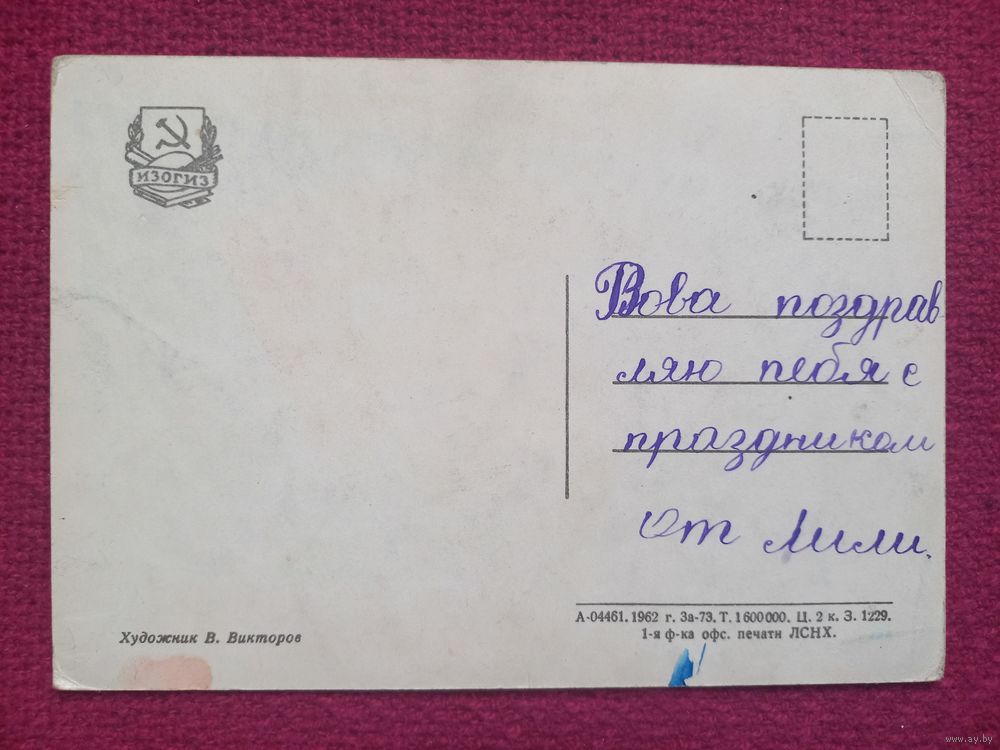 ИЗОГИЗ
Вова поздрав
ляю тебя с
праздником
От Лили.
Художник В. Викторов
А-04461. 1962 г. За-73. Т. 1600000. Ц. 2 к. З. 1229.
1-я ф-ка офс. печати ЛСНХ.
www.ay.by